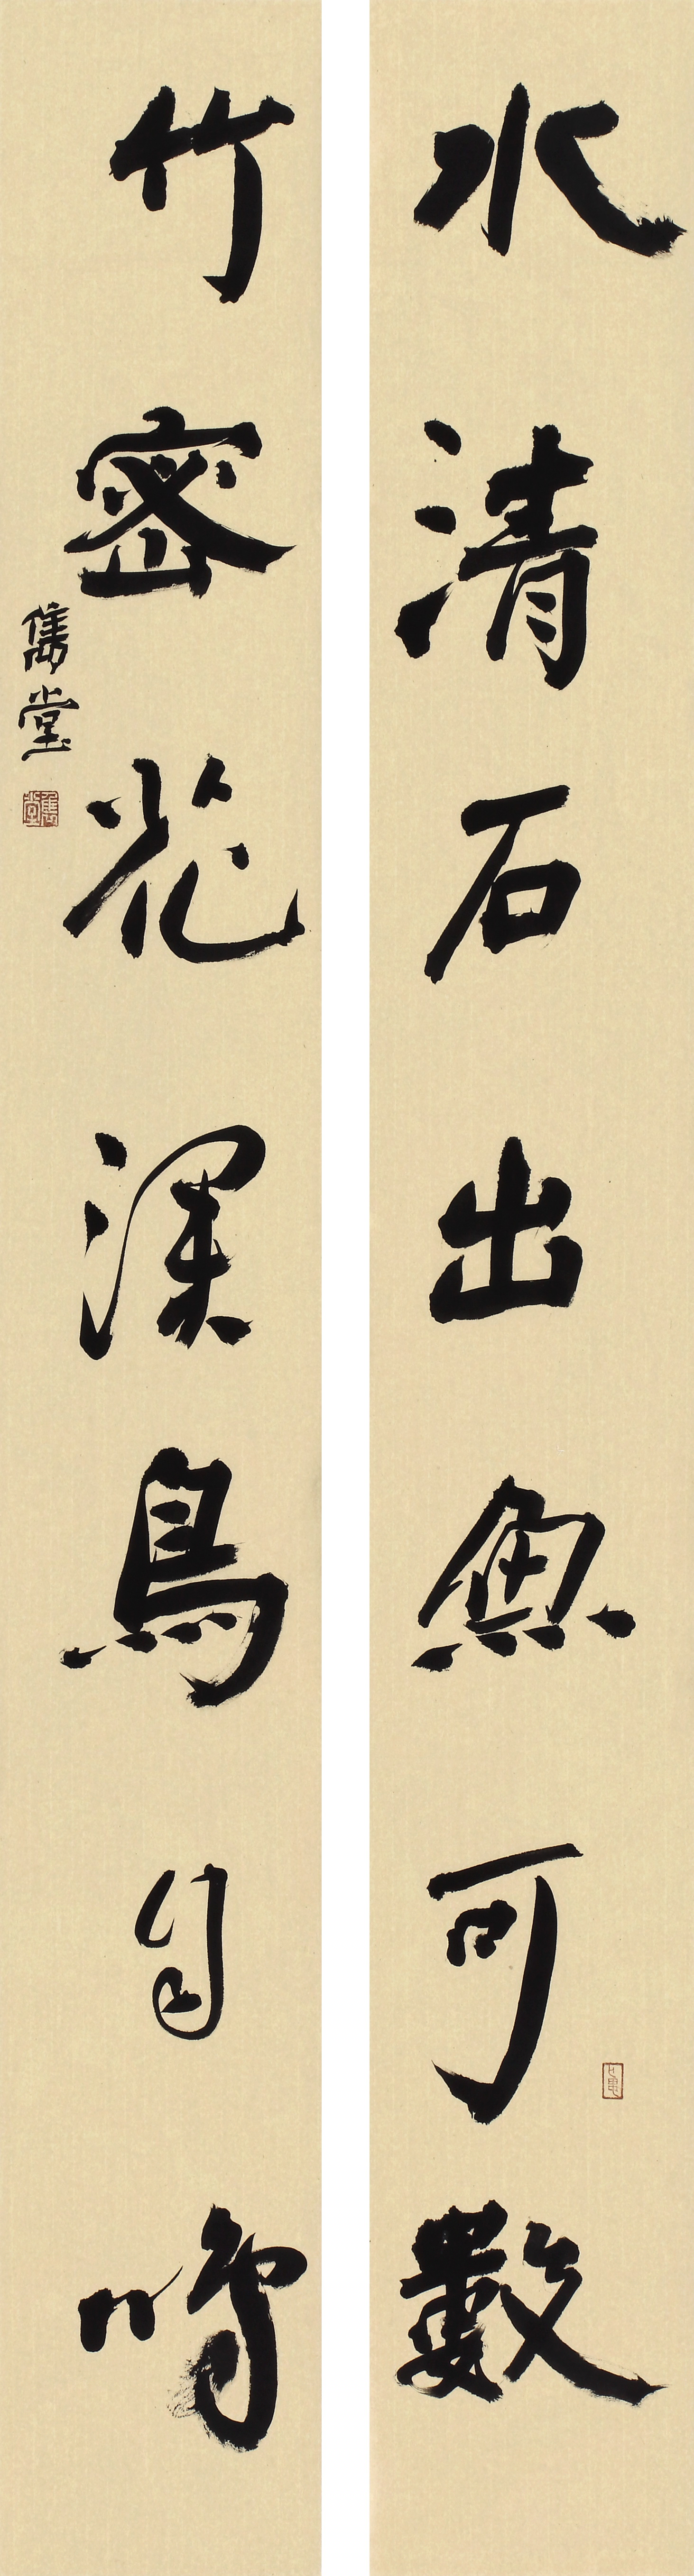 水清石出魚可數
竹密花深鳥自鳴
雋堂
雋堂